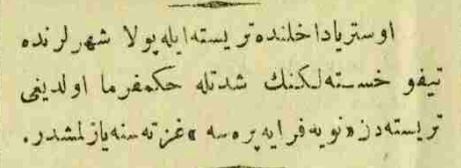 اوستریا داخلنده تریسته ایله پولا شهرلرنده
تیفو خسته‌لكنك شدتله حكمفرما اولدیغی
تریسته‌دن «نویه فرایه پره‌سه» غزته‌سنه یازلمشدر.